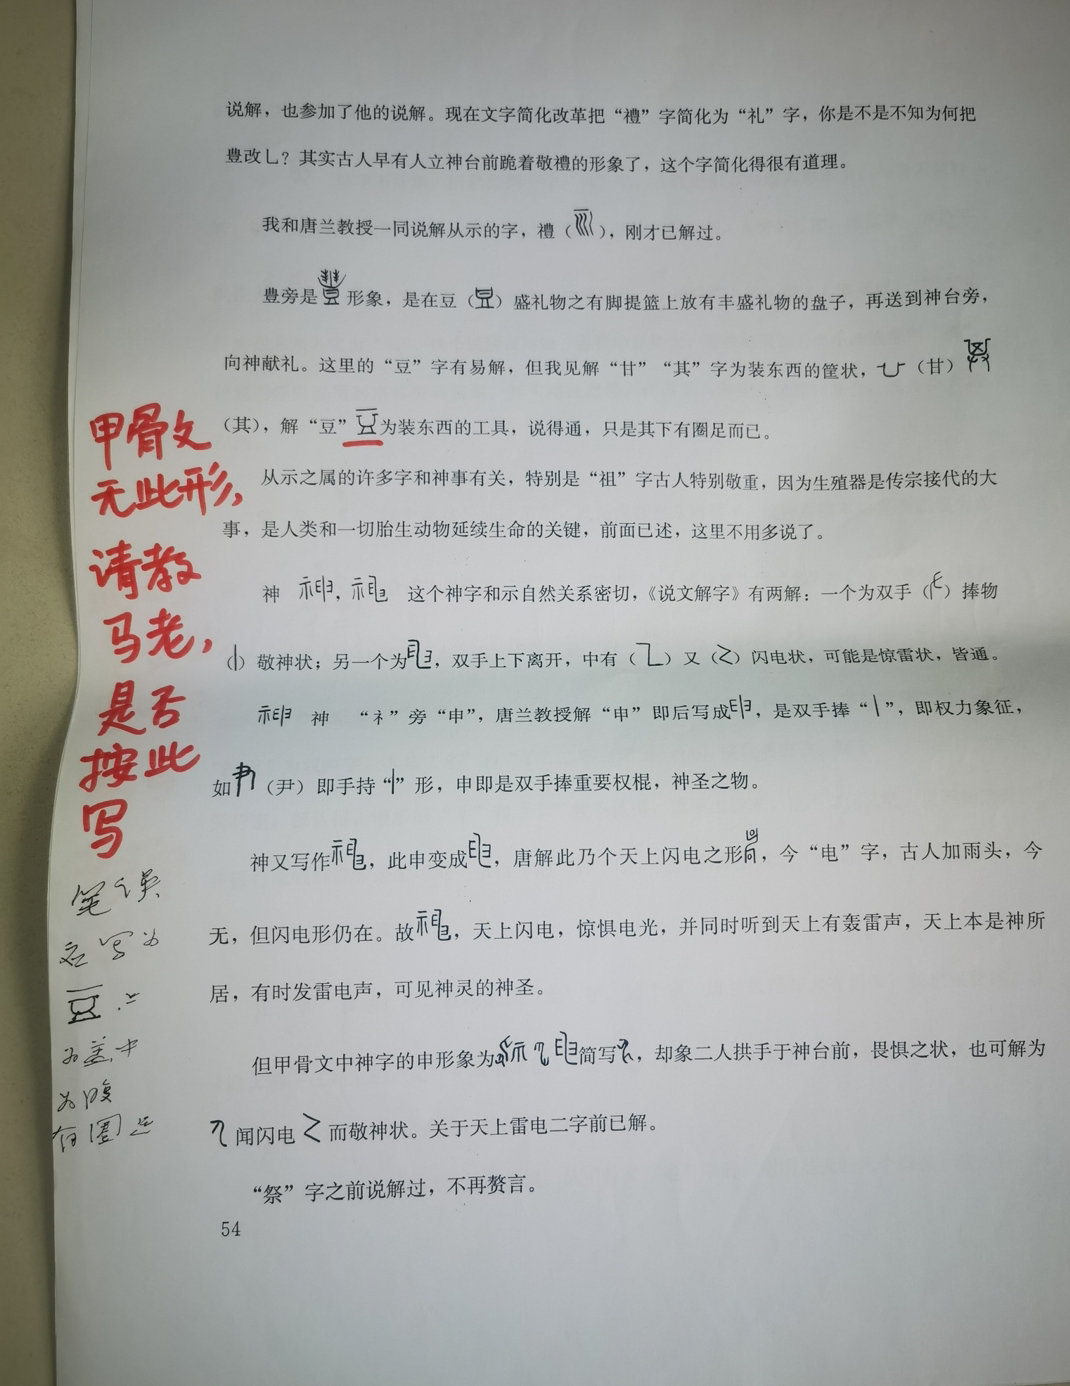 说解，也参加了他的说解。现在文字简化改革把“禮”字简化为“礼”字，你是不是不知为何把
豊改乚？其实古人早有人立神台前跪着敬禮的形象了，这个字简化得很有道理。
我和唐兰教授一同说解从示的字，禮（），刚才已解过。
豊旁是形象，是在豆（）盛礼物之有脚提篮上放有丰盛礼物的盘子，再送到神台旁，
向神献礼。这里的“豆”字有易解，但我见解“甘”“其”字为装东西的筐状，（甘）
（其），解“豆”为装东西的工具，说得通，只是其下有圈足而已。
从示之属的许多字和神事有关，特别是“祖”字古人特别敬重，因为生殖器是传宗接代的大
事，是人类和一切胎生动物延续生命的关键，前面已述，这里不用多说了。
神 ， 这个神字和示自然关系密切，《说文解字》有两解：一个为双手（）捧物
（）敬神状；另一个为，双手上下离开，中有（）又（）闪电状，可能是惊雷状，皆通。
神 “礻”旁“申”，唐兰教授解“申”即后写成，是双手捧“丨”，即权力象征，
如（尹）即手持“”形，申即是双手捧重要权棍，神圣之物。
神又写作，此申变成，唐解此乃个天上闪电之形，今“电”字，古人加雨头，今
无，但闪电形仍在。故，天上闪电，惊惧电光，并同时听到天上有轰雷声，天上本是神所
居，有时发雷电声，可见神灵的神圣。
但甲骨文中神字的申形象为简写，却象二人拱手于神台前，畏惧之状，也可解为
闻闪电而敬神状。关于天上雷电二字前已解。
“祭”字之前说解过，不再赘言。
54
甲骨文
无此形，
请教
马老，
是否
按此
写
笔误
应写为
豆
为盖中
为腹
有圈足